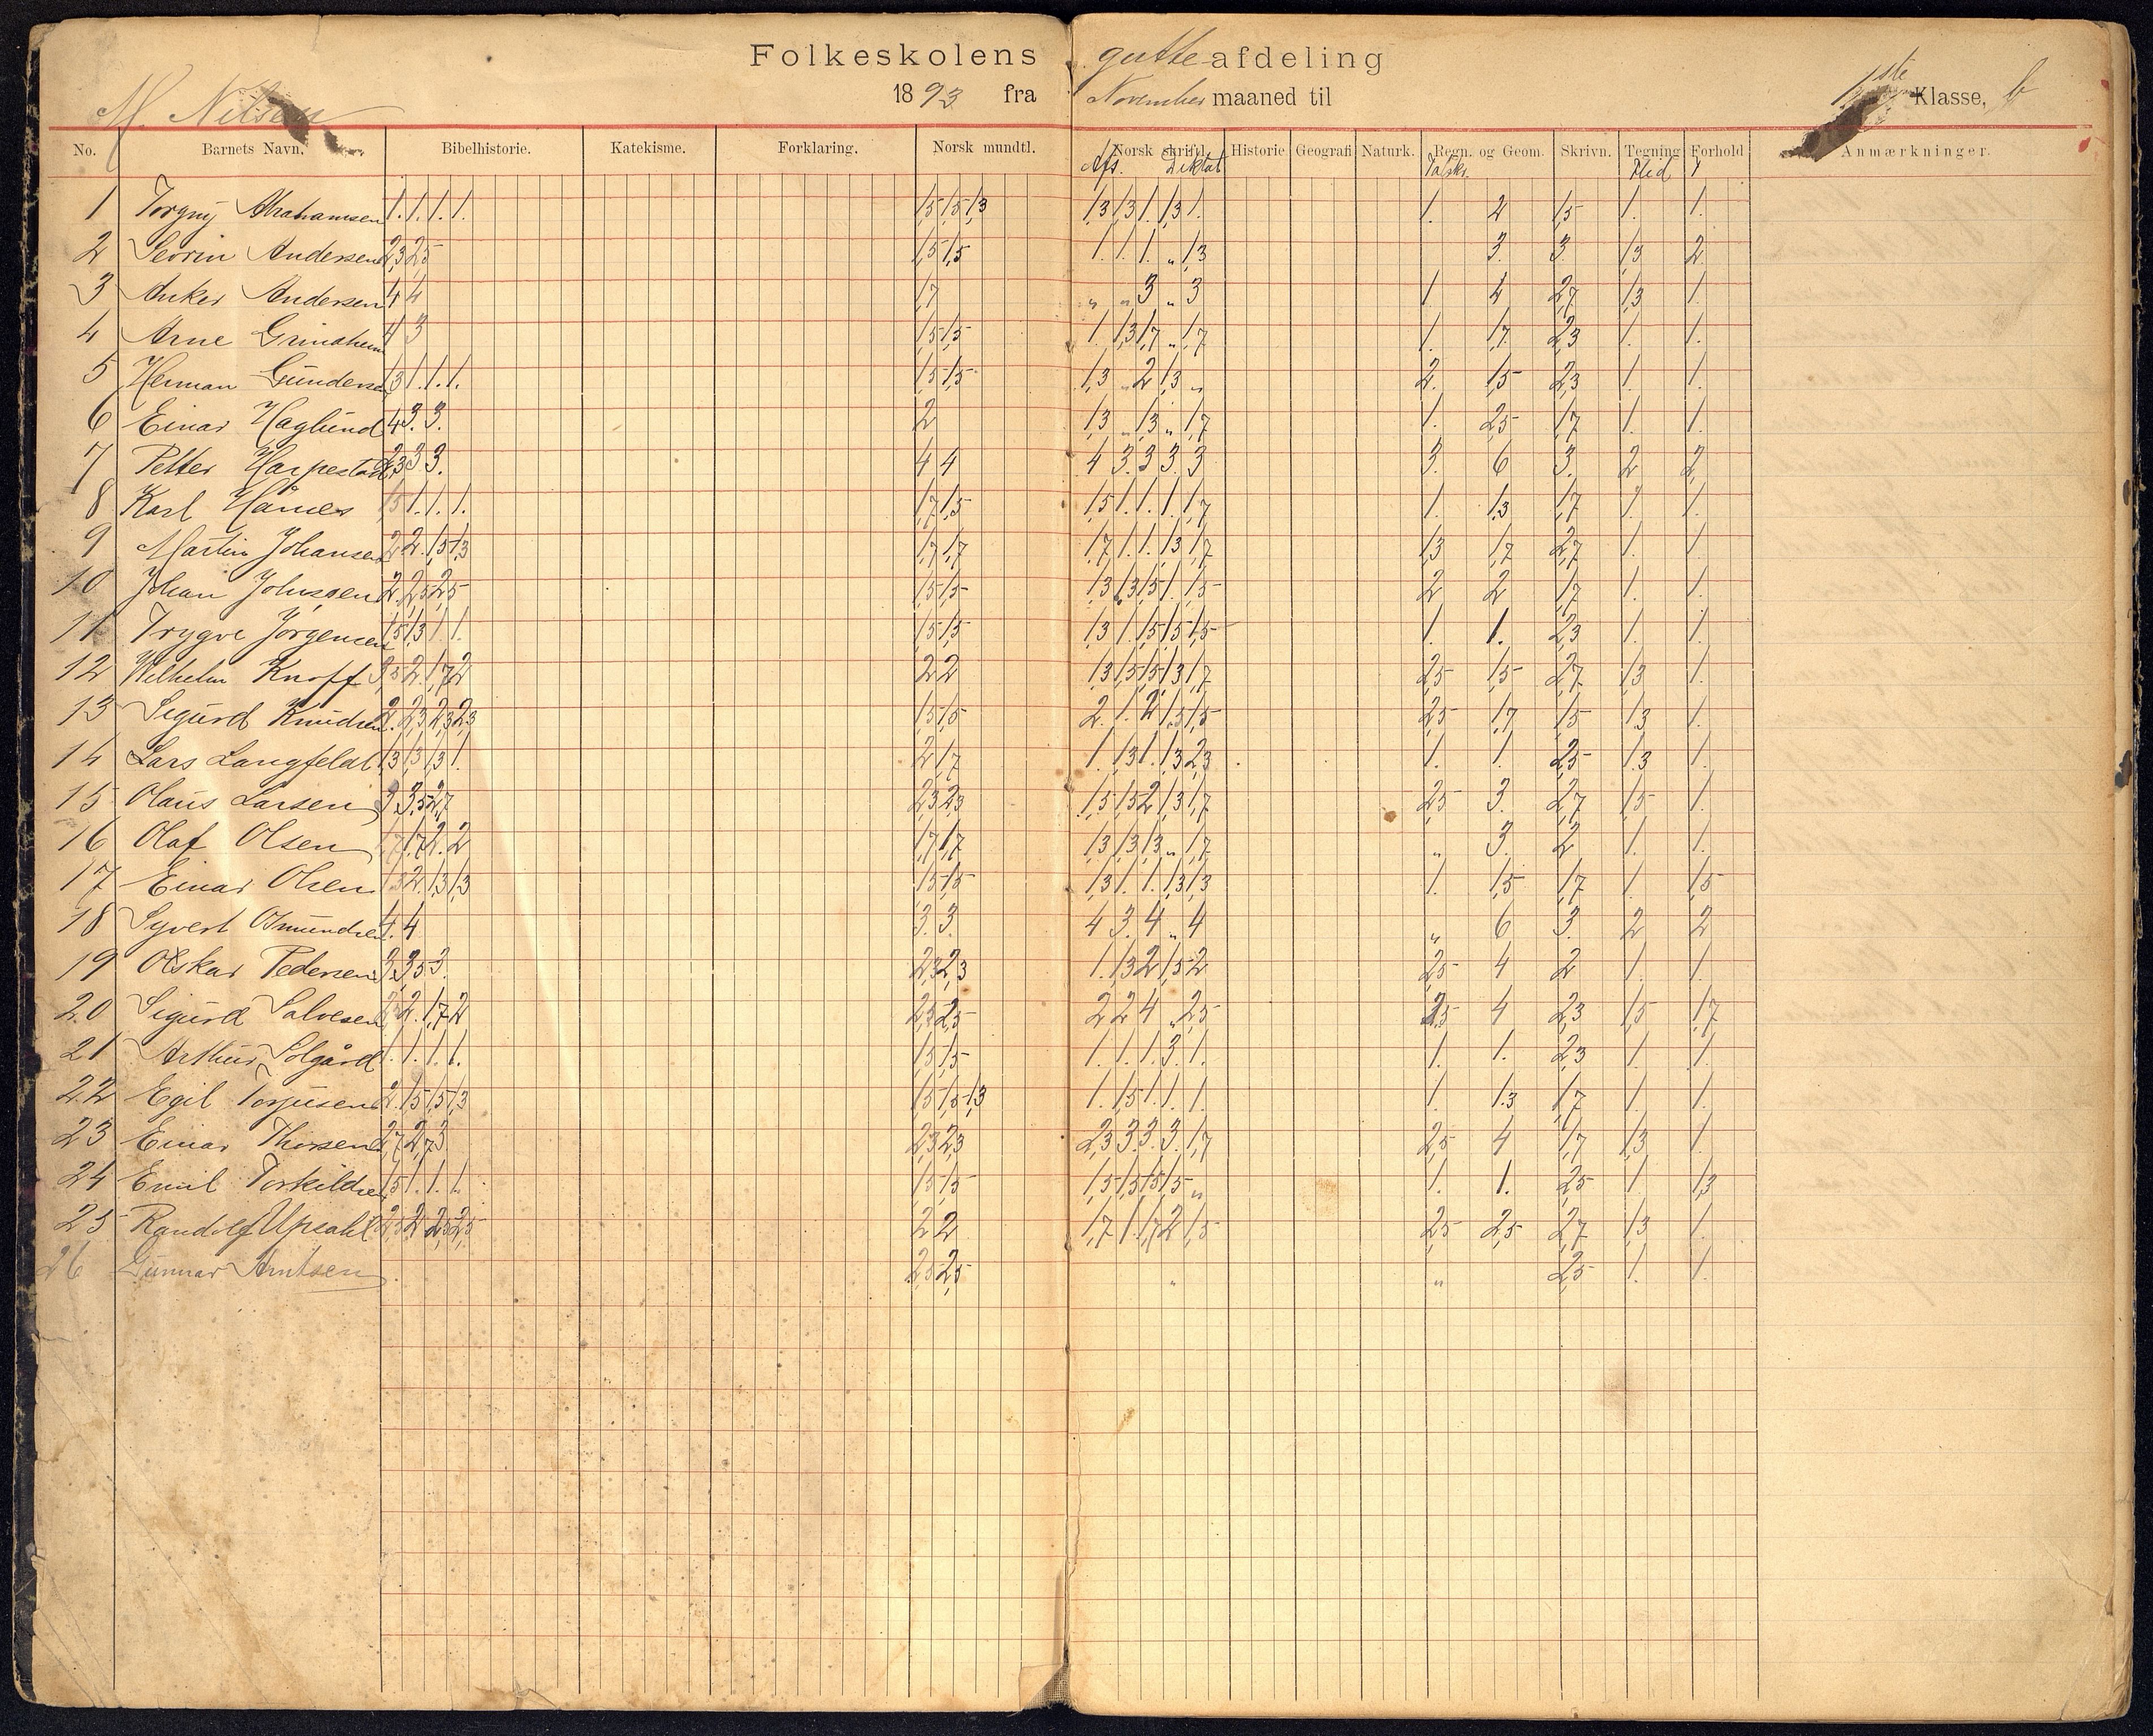 Folkeskolens gutte afdeling
M. Nilsen 1893 fra November maaned til 1ste Klasse, b
No. Barnets Navn. Bibelhistorie. Katekisme. Forklaring. Norsk mundtl. Norsk skriftl. Historie Geografi Naturk. Regn. og Geom. Skrivn. Tegning Forhold Anmærkninger.
Afs. Diktat Flid
1 Torgny Abrahamsen 1. 1. 1. 1. 1,5 1,5 1,3 1,3 1,3 1. 1,3 1. 1. 2 1,5 1. 1.
2 Sevrin Andersen 2,3 2,5 1,5 1,5 1. 1. 1. „ 1,3 3. 3 1,3 2.
3 Anker Andersen 4 4 1,7 „ „ 3 „ 3 1. 4 2,7 1,3 1.
4 Arne Grindheim 4 3 1,5 1,5 1. 1,3 1,7 „ 1,7 1. 1,7 2,3 1. 1.
5 Herman Gundersen 1,3 1. 1. 1. 1,5 1,5 1,3 „ 2 1,3 „ 2. 1,5 2,3 1. 1.
6 Einar Haglund 4 3. 3. 2 1,3 „ 1,3 „ 1,7 1. 2,5 1,7 1. 1.
7 Petter Harpestad 2,3 3 3. 4 4 4 3. 3 3. 3 3. 6 3. 2 2,
8 Karl Hånes 1,5 1. 1. 1. 1,7 1,5 1,5 1. 1. 1. 1,7 1. 1,3 1,7 1. 1.
9 Martin Johansen 2 2. 1,5 1,3 1,7 1,7 1,7 1. 1. 1,3 1,7 1,3 1,7 2,7 1. 1.
10 Johan Johnsen 2. 2,5 2,5 1,5 1,5 1,3 1,3 1,5 1. 1,5 2 2 1,7 1. 1.
11 Trygve Jørgensen 1,5 1,3 1. 1. 1,5 1,5 1,3 1. 1,5 1,5 1,5 1. 1. 2,3 1. 1.
12 Wilhelm Knoff 3,5 2. 1,7 2 2 2 1,3 1,5 1,5 1,3 1,7 2,5 1,5 2,7 1,3 1.
13 Sigurd Knudsen 2. 2,3 2,3 2,3 1,5 1,5 2. 1. 2 1,5 1,5 2,5 1,7 1,5 1,3 1.
14 Lars Langfeldt 1,3 1,3 1,3 1. 2 1,7 1. 1,3 1. 1,3 2,3 1. 1. 2,5 1,3 1.
15 Olaus Larsen 3. 3,5 2,7 2,3 2,3 1,5 1,5 2 1,3 1,7 2,5 3. 2,7 1,5 1.
16 Olaf Olsen 1,7 1,7 2. 2 1,7 1,7 1,3 1,3 1,3 „ 1,7 „ 3. 2 1. 1.
17 Einar Olsen 1,3 2. 1,3 1,3 1,5 1,5 1,3 1. 1. 1,3 1,3 1. 1,5 1,7 1. 1,5
18 Syvert Osmundsen 4. 4 3. 3. 4 3. 4 „ 4 „ 6 3. 2 2
19 Oskar Pedersen 3. 3,5 3. 2,3 2,3 1. 1,3 2 1,5 2 2,5 4 2 1. 1.
20 Sigurd Salvesen 2. 1,7 2 2,5 2,5 2 2 4 „ 2,5 2,5 4 2,3 1,5 1,7
21 Arthur Solgård 1. 1. 1. 1. 1,5 1,5 1. 1. 1. 3. 1. 1. 1. 2,3 1. 1.
22 Egil Torjusen 2. 1,5 1,5 1,3 1,5 1,5 1,3 1. 1,5 1. 1. 1. 1. 1,3 1,7 1. 1.
23 Einar Thorsen 2,7 2,7 3 2,3 2,3 2,3 3 3. 3. 1,7 2,5 4 1,7 1,3 1.
24 Emil Torkildsen 1,5 1. 1. 1. 1,5 1,5 1,5 1,5 1,5 1,5 „ 1. 1. 2,5 1. 1,3
25 Randolf Upsahl 2,3 2 2,3 2,5 2 2 1,7 1. 1,7 2 1,5 2,5 2,5 2,7 1,3 1.
26 Gunnar Arntsen 2,5 2,5 „ „ 2,5 1. 1.